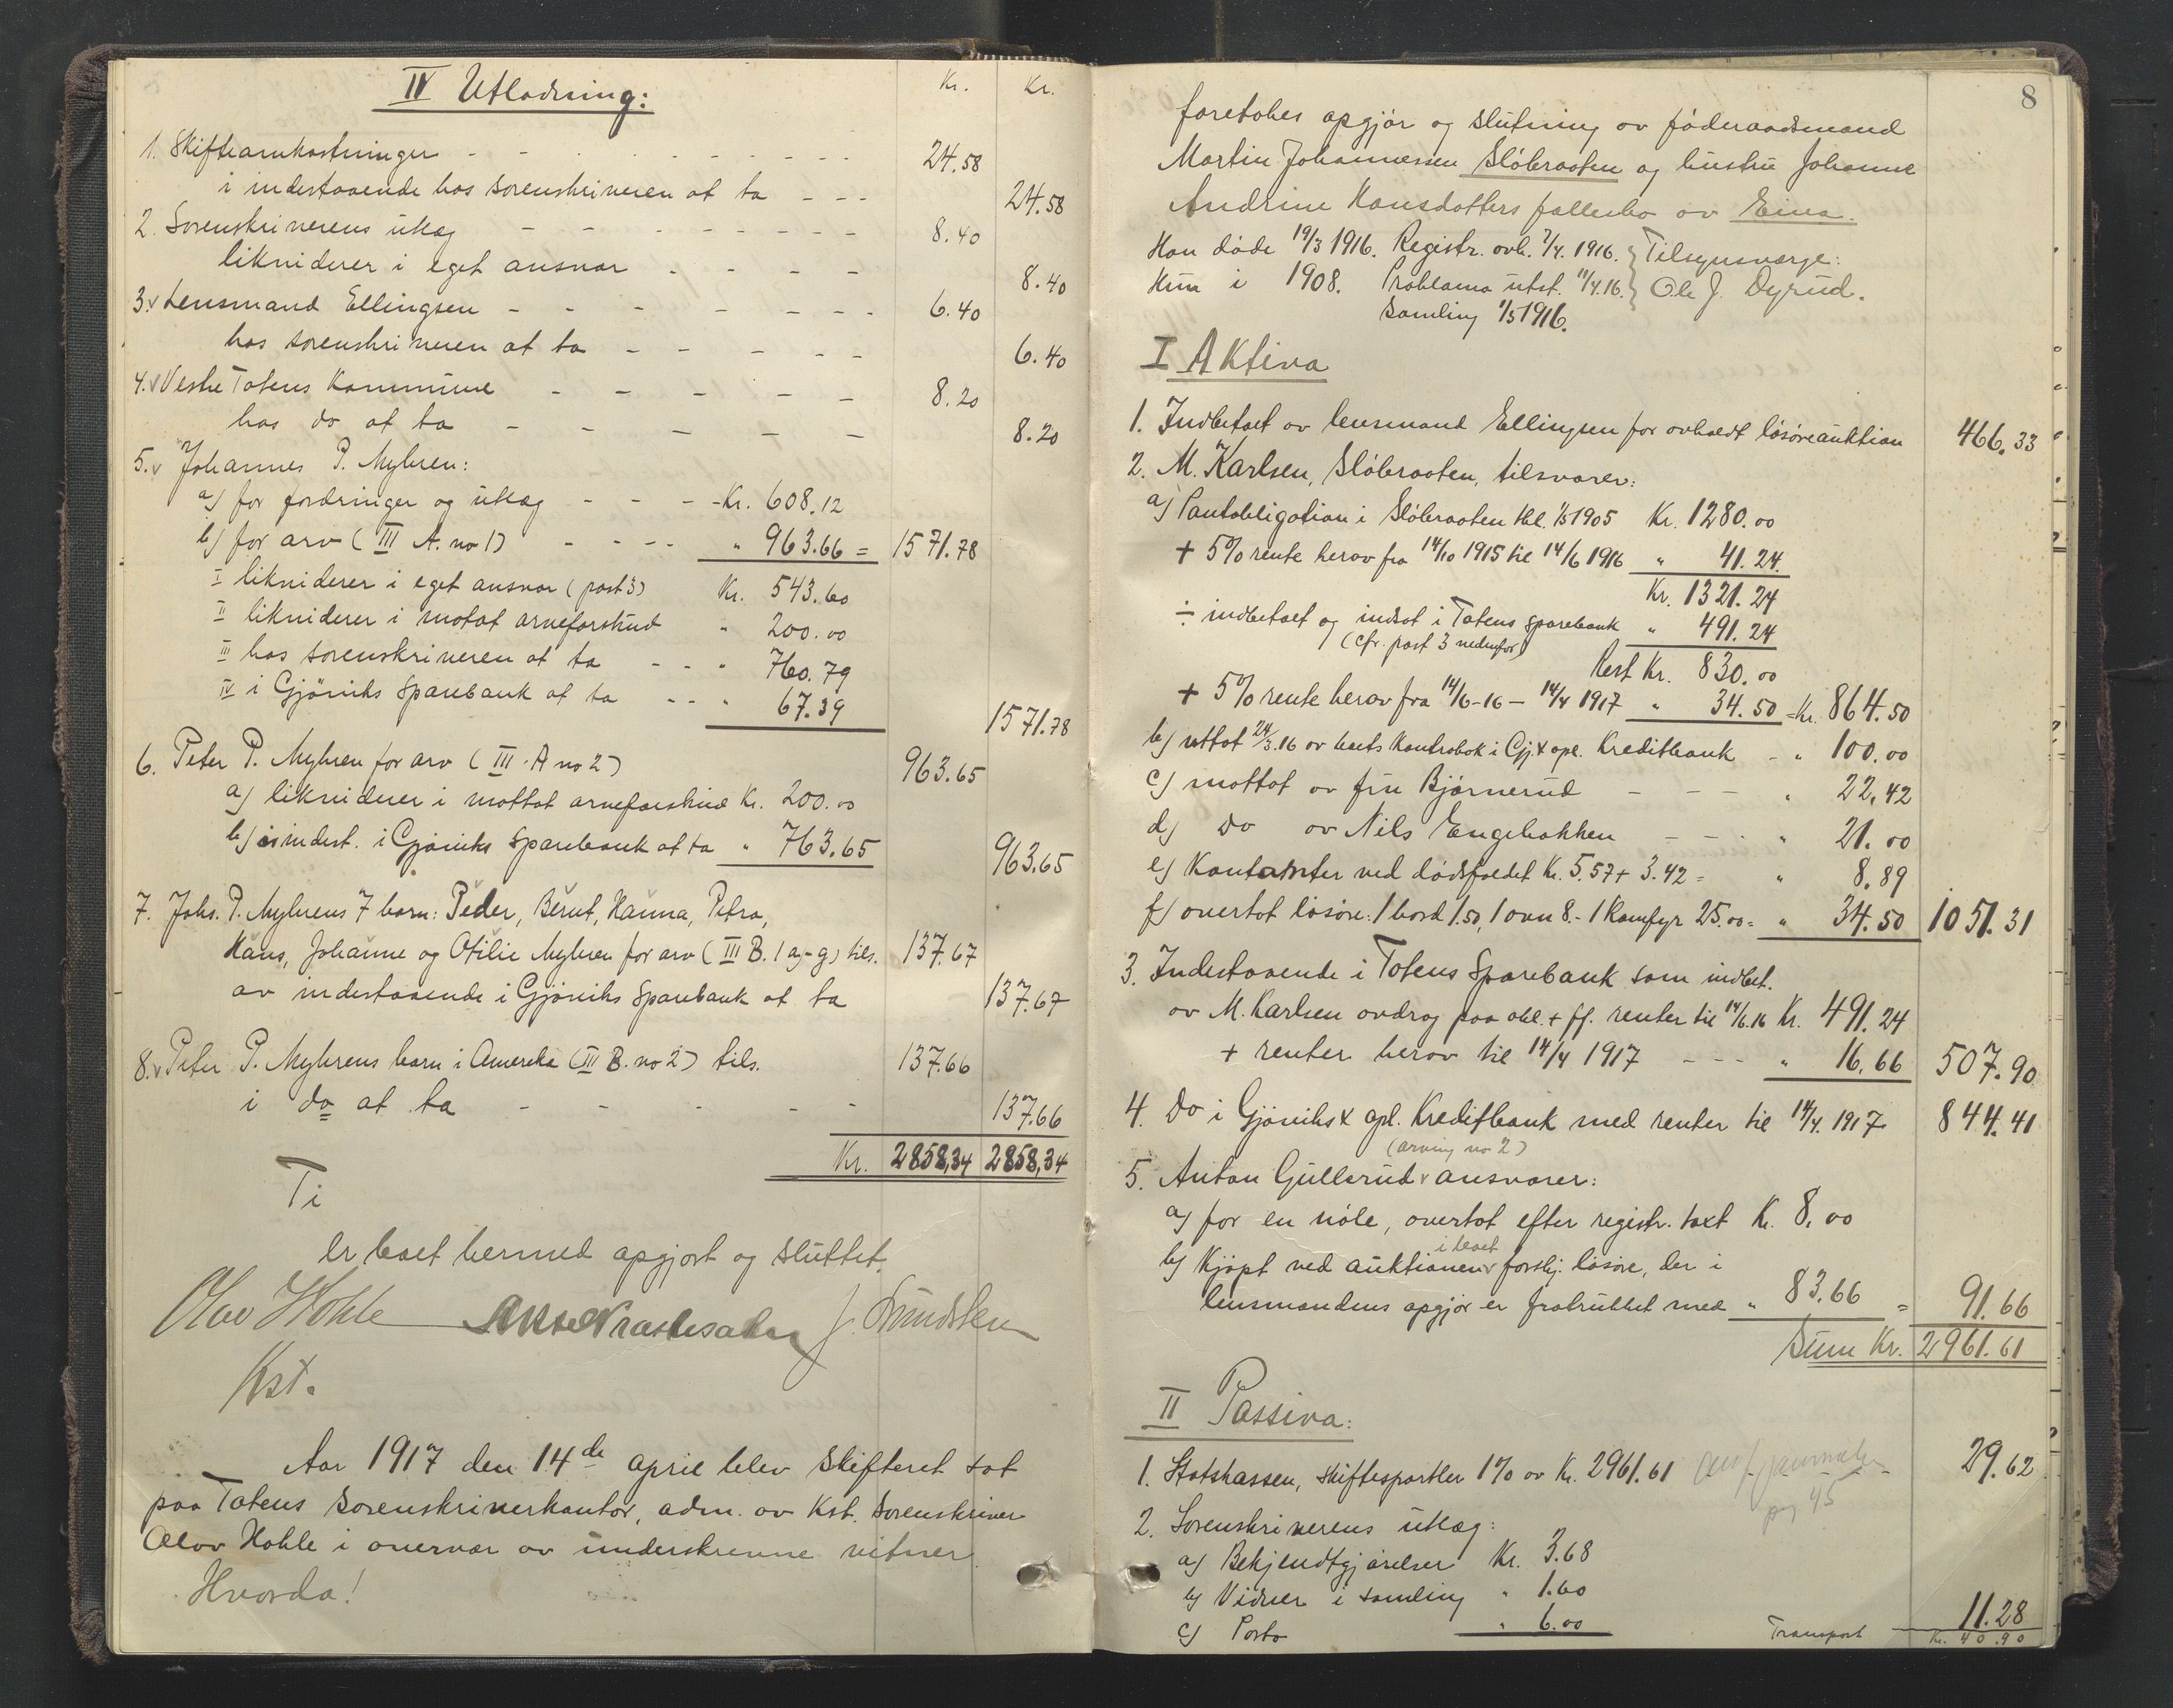 IV Utlodning:
Kr. Kr.
1. Skifteomkostninger - - - - - - - - 24.58
i indestaaende hos sorenskriveren at ta - - - 24.58
2. Sorenskriverens utlæg - - - - - - - - 8.40
likviderer i eget ansvar - - - - 8.40
3. Lensmand Ellingsen - - - - - - - 6.40
hos sorenskriveren at ta - - - - - 6.40
4. Vestre Totens Kommune - - - - - 8.20
hos do at ta - - - - - 8.20
5. Johannes P. Myhren:
a) for fordringer og utlæg - - - - Kr. 608.12
b) for arv (III A. no 1) - - - - " 963.66 = 1571.78
I likviderer i eget ansvar (post 3) Kr. 543.60
II likviderer i motat arveforskud " 200.00
III hos sorenskriveren at ta - - " 760.79
IV i Gjøviks Sparebank at ta - - " 67.39 1571.78
6. Peter P. Myhren for arv (III. A no 2) 963.65
a) likviderer i mottat arveforskud Kr. 200.00
b) indest. i Gjøviks Sparebank at ta " 763.65 963.65
7. Johs. P. Myhrens 7 barn: Peder, Bernt, Hanna, Petra,
Hans, Johanne og Otilie Myhren for arv (III B. 1 a)-g) tils. 137.67
av indestaaende i Gjøviks Sparebank at ta 137.67
8. Peter P. Myhrens barn i Amerika (III B. no 2) tils. 137.66
i do at ta - - - - - 137.66
Kr. 2858,34 2858,34
Ti
er boet hermed opgjort og sluttet.
Olav Hohle J. Lundsten
Kst.
Aar 1917 den 14de april blev skifteret sat
paa Totens sorenskriverkontor, adm. av Kst. sorenskriver
Olav Hohle i overvær av underskrevne vitner.
Hvorda!
8
foretokes opgjør og slutning av føderaadsmand
Martin Johannessen Sløbraaten og hustru Johanne
Andrine Hansdatters fællesbo av Eina.
Han døde 19/3 1916. Registr. avh. 7/4. 1916. } Tilsynsværge:
Hun i 1908. Proklama utst. 11/4.16. } Ole J. Dyrud.
Samling 1/5 1916.
I Aktiva
1. Indbetalt av lensmand Ellingsen for avholdt løsøreauktion 466.33
2. M. Karlsen, Sløbraaten, tilsvarer:
a) Pantobligation i Sløbraaten tbl. 1/5 1905 Kr. 1280.00
+ 5% rente herav fra 14/10 1915 til 14/6 1916 " 41.24
Kr. 1321.24
÷ indbetalt og indsat i Totens Sparebank " 491.24
(cfr. post 3 nedenfor)
Rest Kr. 830.00
+ 5% rente herav fra 14/6-16 - 14/4 1917 " 34.50 = Kr. 864.50
b) uttat 24/3.16 av boets Kontrabok i Gj. & opl. Kreditbank - " 100.00
c) mottat av fru Bjørnerud - - - " 22.42
d) do av Nils Engebakken - - - " 21.00
e) Kontanter ved dødsfaldet Kr. 5.57 + 3.42 = " 8.89
f) overtat løsøre: 1 bord 1.50, 1 ovn 8.- 1 Komfyr 25.00 = " 34.50 1051.31
3. Indestaaende i Totens Sparebank som indbet.
av M. Karlsen avdrag paa obl. + ff. renter til 14/6.16 Kr. 491.24
+ renter herav til 14/4 1917 - - - " 16.66 507.90
4. Do i Gjøviks & opl. Kreditbank med renter til 14/4. 1917 844.41
(arving no 2)
5. Anton Gullerud ansvarer:
a) for en nøle, overtat efter registr. taxt Kr. 8.00
i boet
b) Kjøpt ved auktionen forskj. løsøre, der i
lensmandens opgjør er fratrukket med " 83.66 = 91.66
Sum Kr. 2961.61
II Passiva:
1. Statskassen, skiftesportler 1% av Kr. 2961.61 29.62
pag 45
2. Sorenskriverens utlæg:
a) Bekjendtgjørelser Kr. 3.68
b) Vidner i samling " 1.60
c) Porto " 6.00 11.28
Transport Kr. 40.90